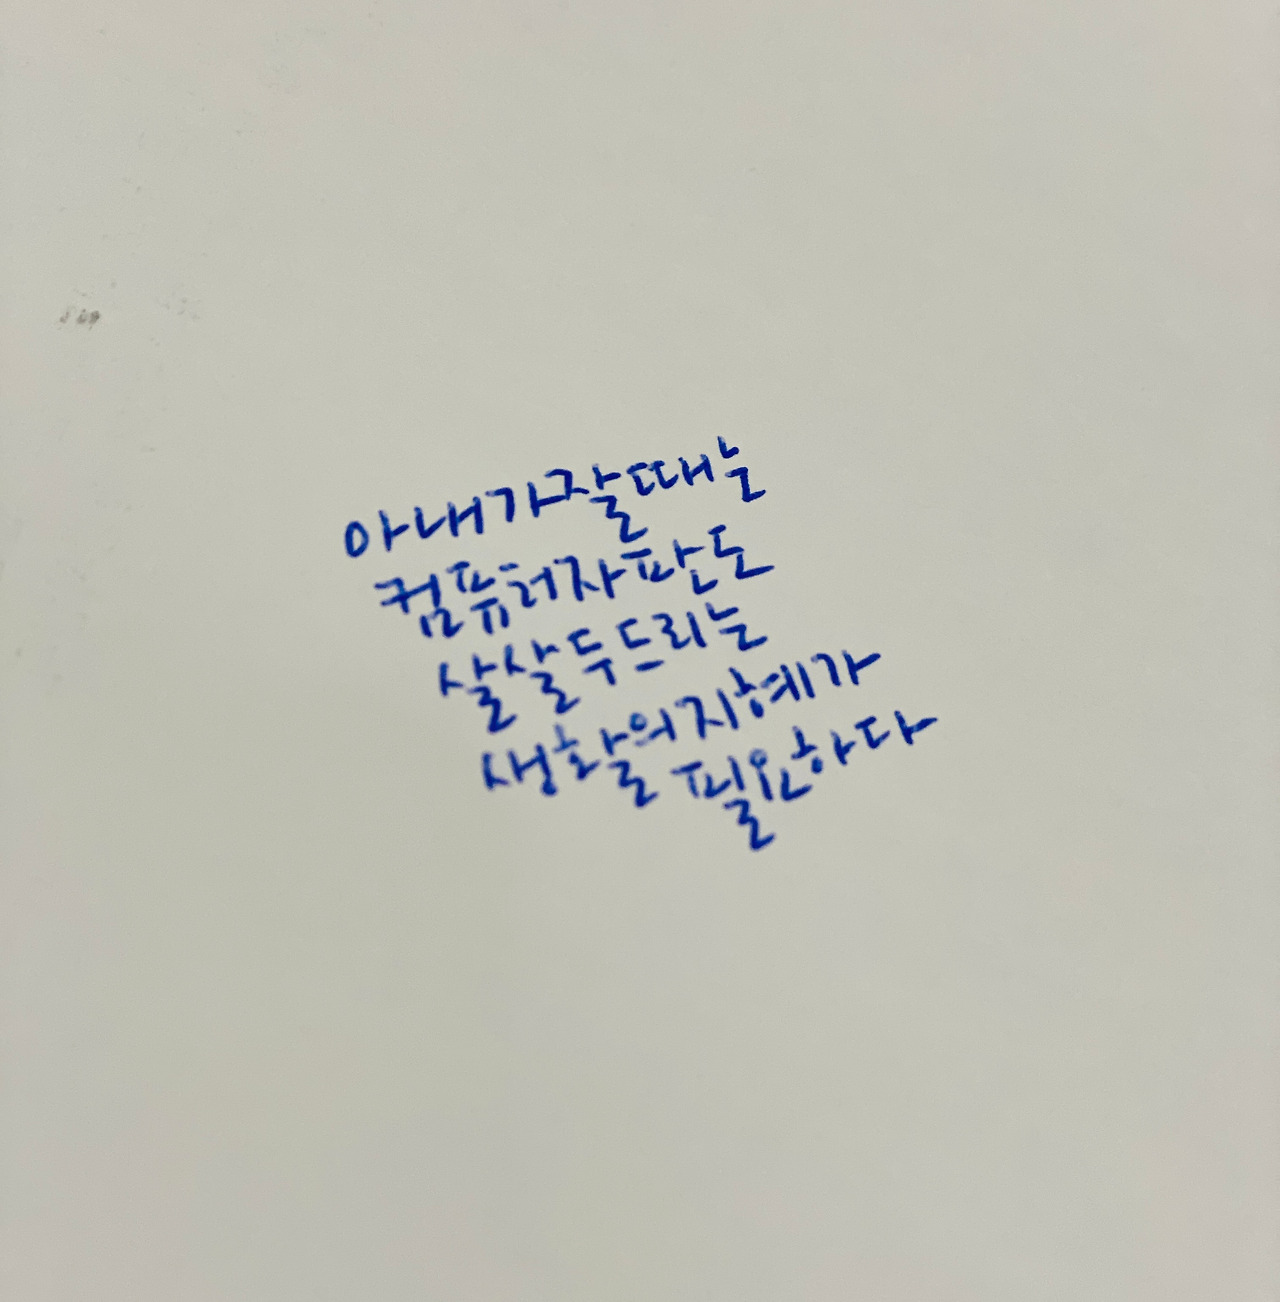 아내가잘때는
컴퓨터자판도
살살두드리는
생활의지혜가
필요하다